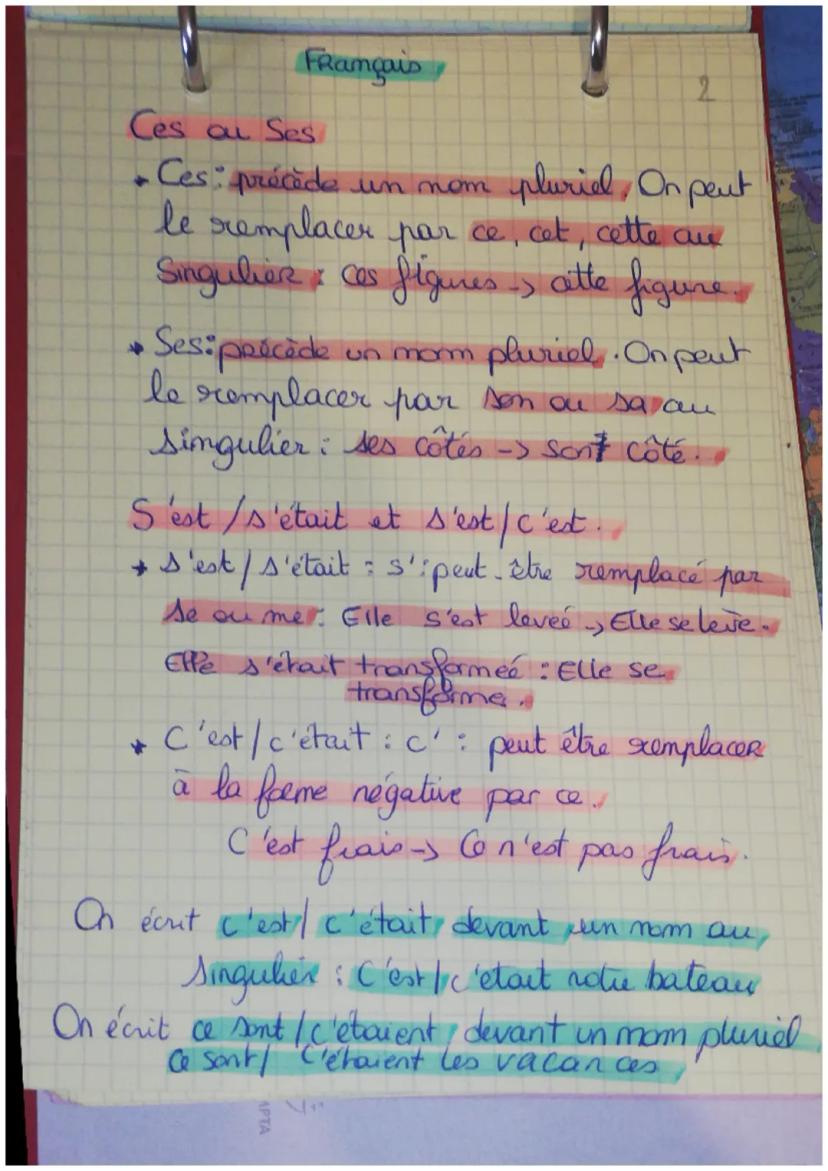 Français
2
Ces ou Ses
Ces : précède un nom pluriel. On peut
le remplacer par ce, cet, cette au
Singulier : ces figures -> cette figure.
Ses : précède un nom pluriel. On peut
le remplacer par son ou sa au
singulier : ses côtés -> son côté.
S'est / s'était et s'est / c'est.
s'est / s'était : s' : peut-être remplacé par
se ou me : Elle s'est leveé -> Elle se lève.
Elle s'était transformeé : Elle se
transforme.
C'est / c'était : c' : peut être remplacer
à la forme négative par ce.
C'est frais -> Ce n'est pas frais.
On écrit c'est / c'était, devant un nom au
singulier : C'est / c'etait notre bateau
On écrit ce sont / c'étaient, devant un nom pluriel
Ce sont / C'étaient les vacances
IPTA